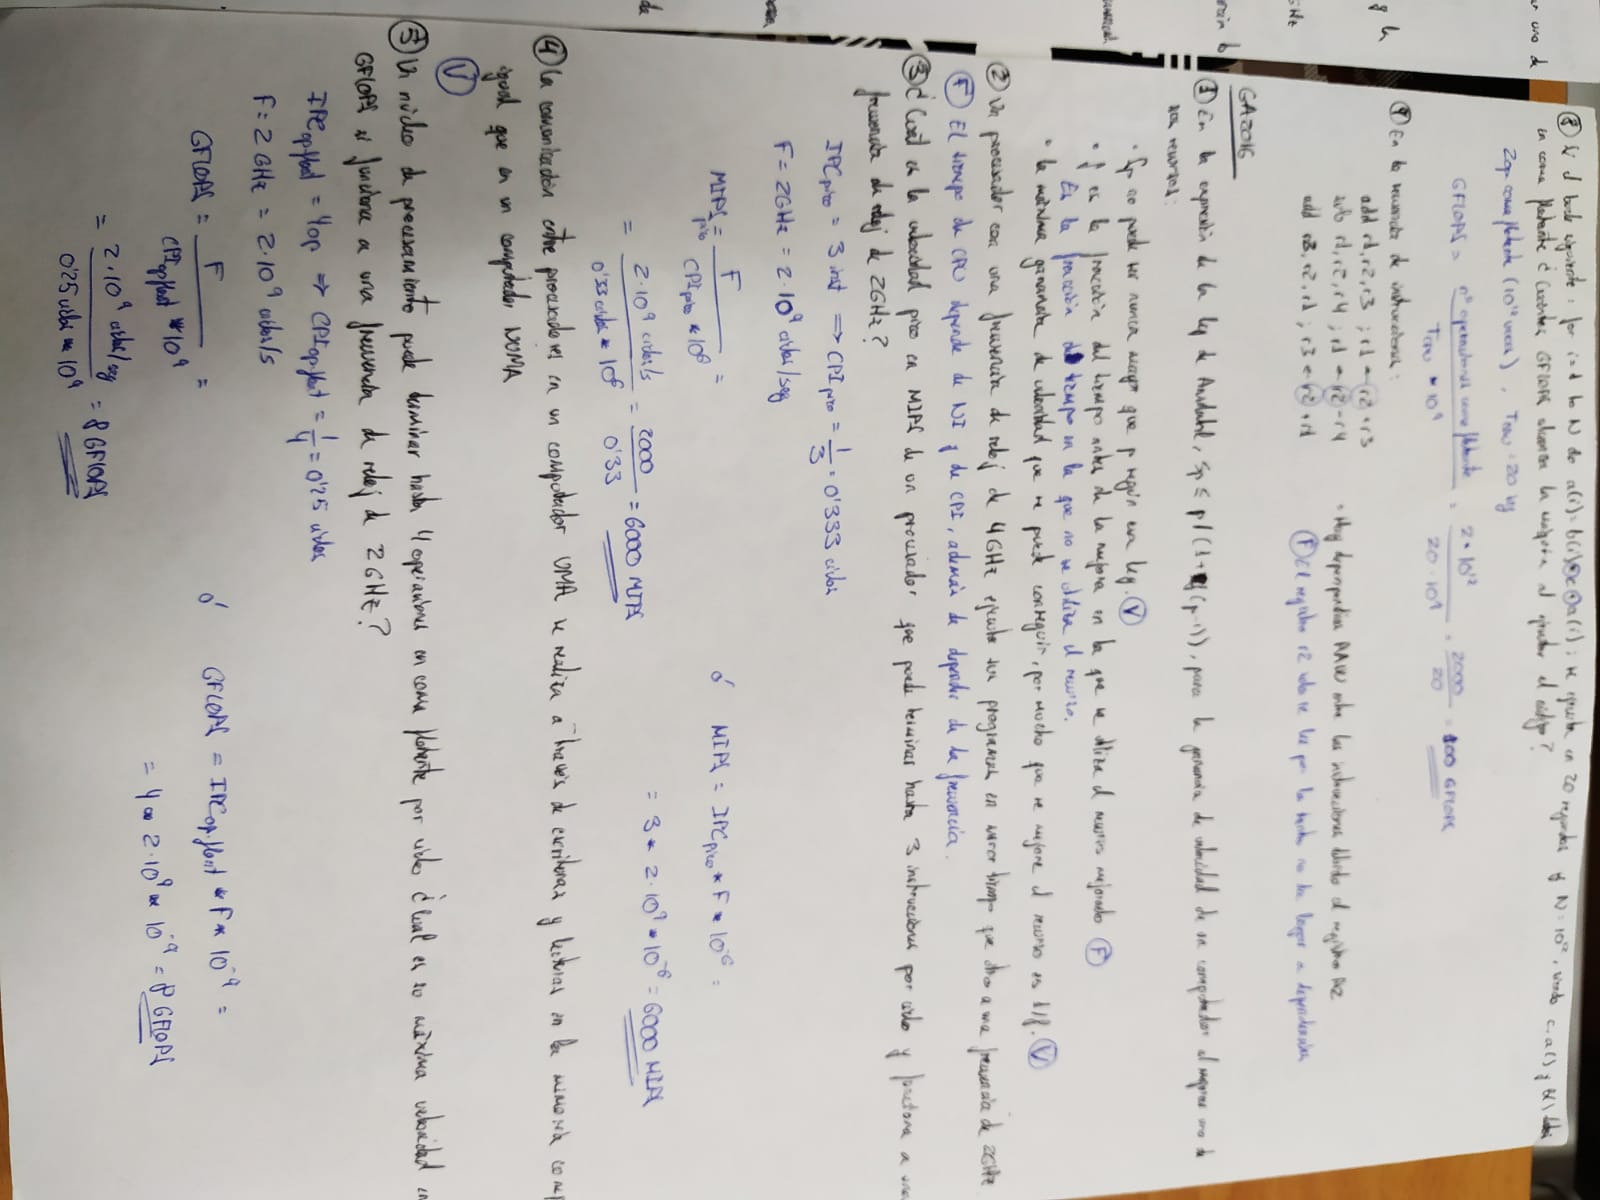 ⑧ Si el bucle siguiente: for i=1 to N do a(i)=b(i)*c+a(i); se ejecuta en 20 segundos y N=10¹², siendo c, a() y b() datos
en coma flotante ¿Cuántos GFLOPS alcanza la máquina al ejecutar el código?
2op coma flotante (10¹² veces), Tcpu = 20 seg
GFLOPS = nº operaciones coma flotante / Tcpu * 10⁹ = 2*10¹² / 20·10⁹ = 2000 / 20 = 100 GFLOPS
⑨ En la secuencia de instrucciones:
add r1,r2,r3 ; r1 ← r2+r3
sub r1,r2,r4 ; r1 ← r2-r4
add r3,r2,r1 ; r3 ← r2+r1
• Hay dependencias RAW entre las instrucciones debido al registro R2
Ⓕ El registro r2 solo se lee por lo tanto no da lugar a dependencias
GA2016
① En la expresión de la ley de Amdahl, Sp ≤ p/(1+f(p-1)), para la ganancia de velocidad de un computador al mejorar uno de
sus recursos:
• Sp no puede ser nunca mayor que p según esa ley. Ⓥ
• f es la fracción del tiempo antes de la mejora en la que se utiliza el recurso mejorado Ⓕ
Es la fracción del tiempo en la que no se utiliza el recurso.
• La máxima ganancia de velocidad que se puede conseguir, por mucho que se mejore el recurso es 1/f. Ⓥ
② Un procesador con una frecuencia de reloj de 4GHz ejecuta un programa en menor tiempo que otro a una frecuencia de 2GHz
Ⓕ El tiempo de CPU depende de NI y de CPI, además de depender de la frecuencia.
③ ¿Cuál es la velocidad pico en MIPS de un procesador que puede terminar hasta 3 instrucciones por ciclo y funciona a una
frecuencia de reloj de 2GHz?
IPCpico = 3 inst ⇒ CPIpico = 1/3 = 0'333 ciclos
F = 2GHz = 2·10⁹ ciclos/seg
MIPSpico = F / CPIpico * 10⁶ = ó MIPS = IPCpico * F * 10⁻⁶ =
= 2·10⁹ ciclos/s / 0'33 ciclos * 10⁶ = 2000 / 0'33 = 6000 MIPS = 3 * 2·10⁹ * 10⁻⁶ = 6000 MIPS
④ La comunicación entre procesadores en un computador UMA se realiza a través de escrituras y lecturas en la memoria
igual que en un computador NUMA
Ⓥ
⑤ Un núcleo de procesamiento puede terminar hasta 4 operaciones en coma flotante por ciclo ¿Cual es su máxima velocidad en
GFLOPS si funciona a una frecuencia de reloj de 2GHz?
IPCop.flot = 4op ⇒ CPIop.flot = 1/4 = 0'25 ciclos
F = 2GHz = 2·10⁹ ciclos/s
GFLOPS = F / CPIop.flot * 10⁹ = ó GFLOPS = IPCop.flot * F * 10⁻⁹ =
= 2·10⁹ ciclos/seg / 0'25 ciclos * 10⁹ = 8 GFLOPS = 4 * 2·10⁹ * 10⁻⁹ = 8 GFLOPS